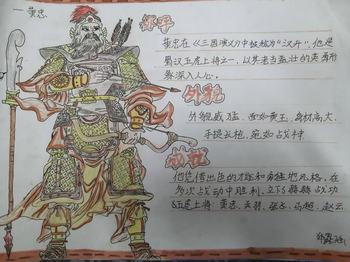 一黄忠
绰号
黄忠在《三国演义》中被称为“汉升”他是
蜀汉五虎上将之一，以其老当益壮的英勇形
象深入人心。
外貌
外貌威猛，面如黄玉，身材高大，
手提长枪，宛如战神
他凭借出色的才能和勇猛地风格，在
多次战动中胜利，立下了赫赫战功
五虎上将：黄忠，关羽，张飞，马超，赵云